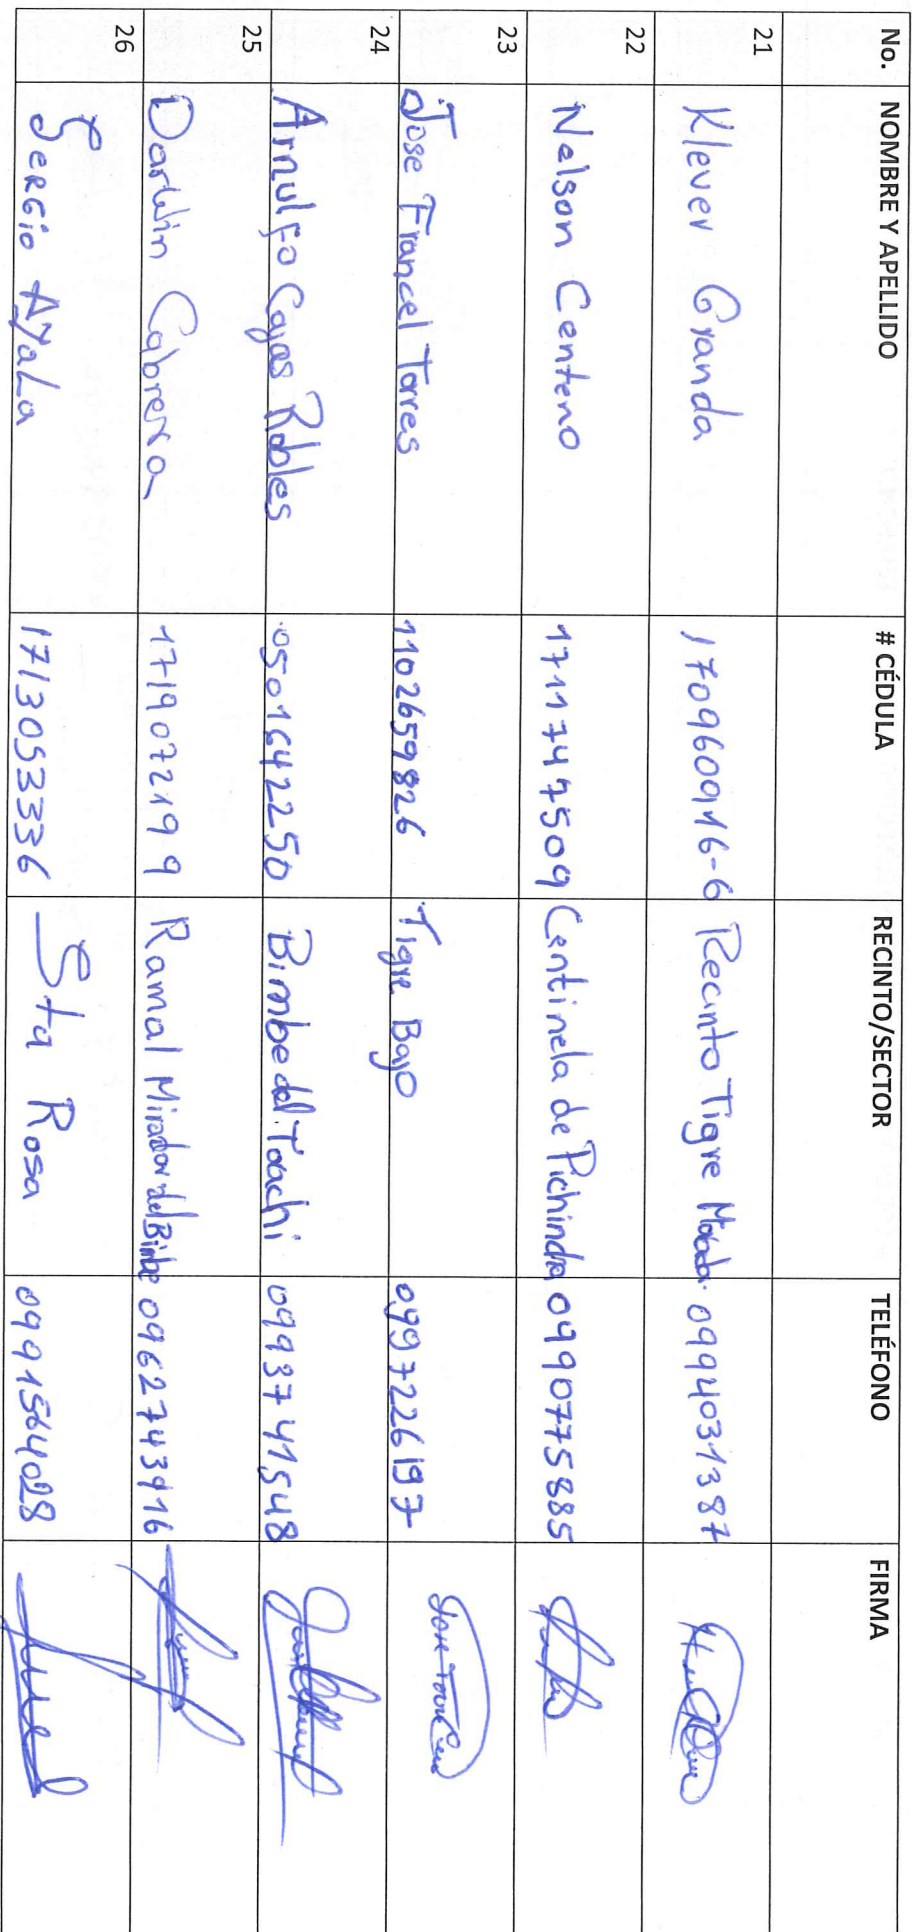 No. NOMBRE Y APELLIDO # CÉDULA RECINTO/SECTOR TELÉFONO FIRMA
21 Klever Granda 170960916-6 Recinto Tigre 0994031387
22 Nelson Centeno 1711747509 Centinela de Pichincha 0990775885
23 Jose Francel Torres 1102659826 Tigre Bajo 0997226197
24 Arnulfo Cajas Robles 0501642250 Bimbe del Toachi 0993741548
25 Darwin Cabrera 1719072199 Ramal Mirador del Bimbe 0962743916
26 Sergio Ayala 1713053336 Sta Rosa 0991564028